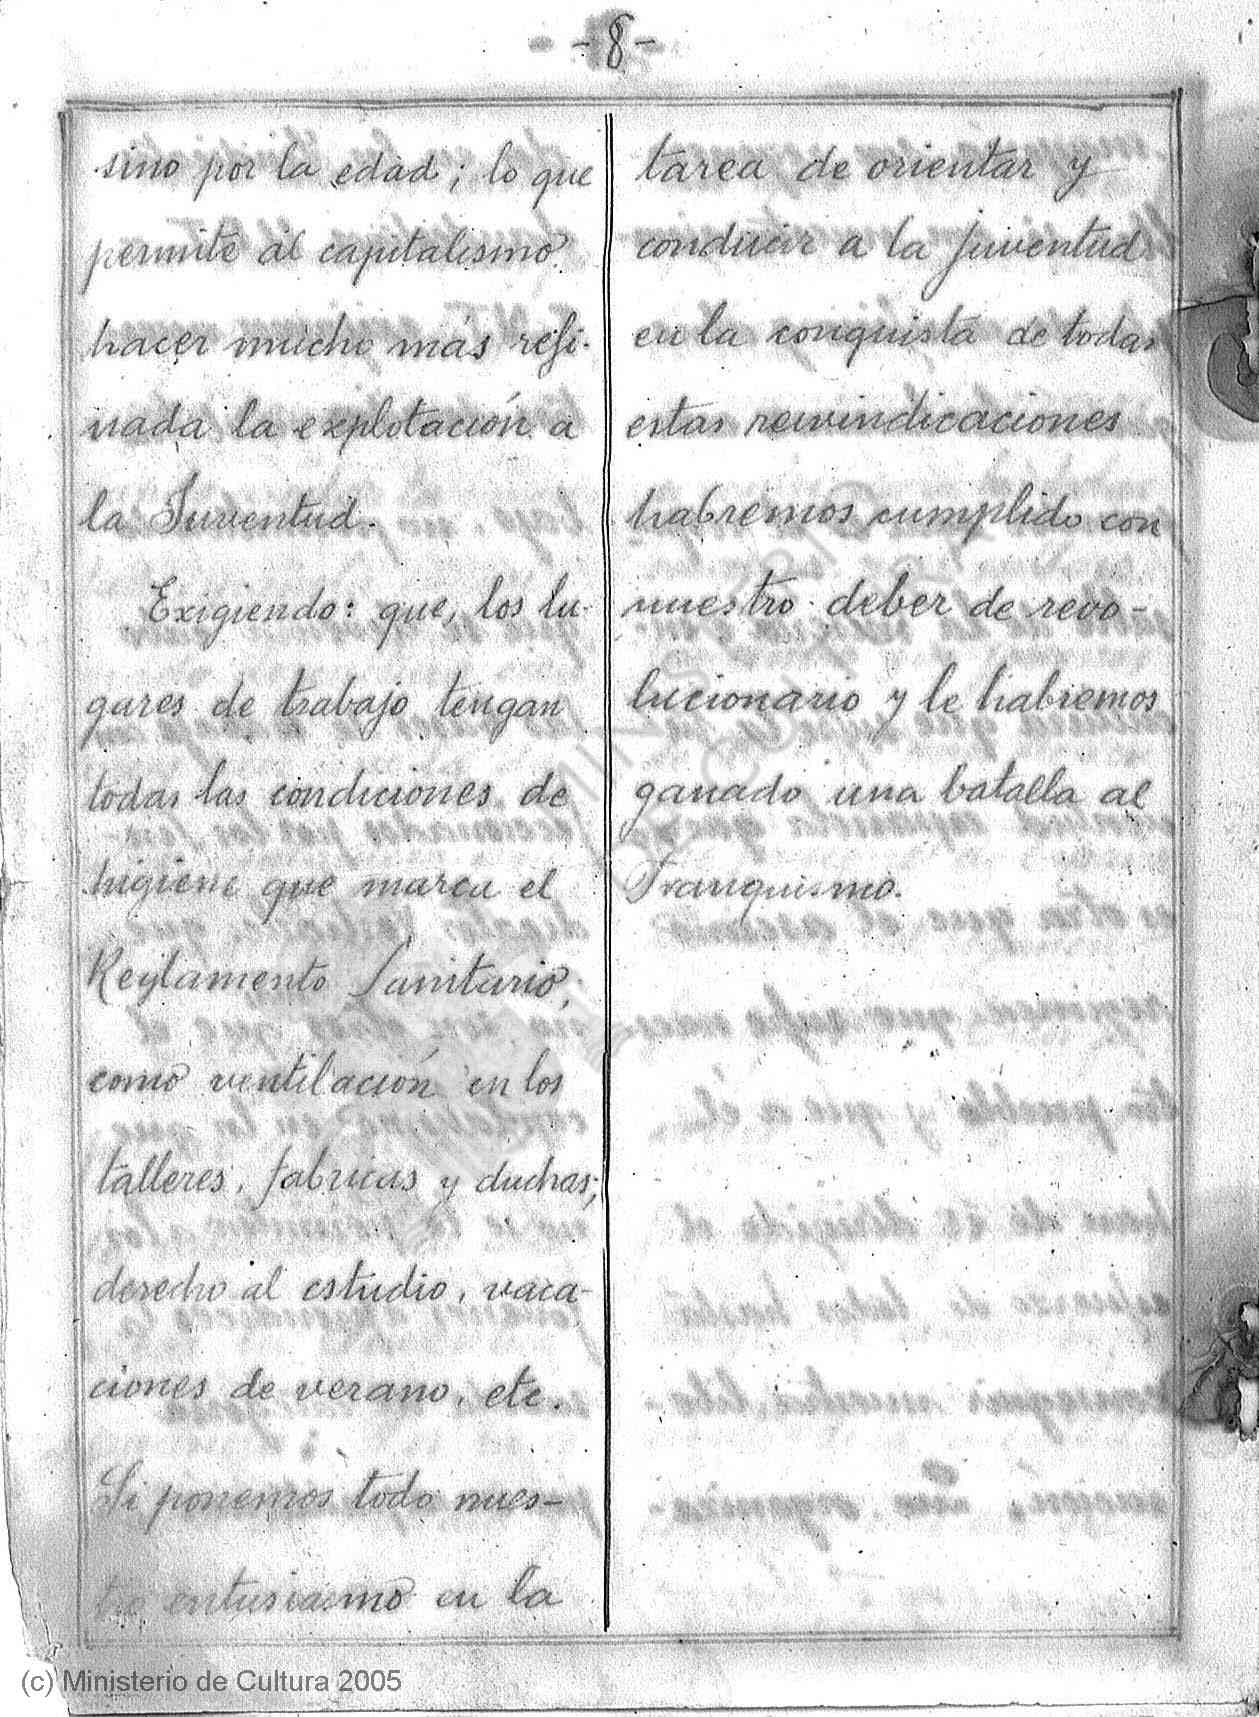 -8-
sino por la edad; lo que
permite al capitalismo
hacer mucho más refi-
nada la explotación a
la Juventud.
Exigiendo: que, los lu-
gares de trabajo tengan
todas las condiciones de
higiene que marca el
Reglamento Sanitario,
como ventilación en los
talleres, fabricas y duchas;
derecho al estudio, vaca-
ciones de verano, etc.
Si ponemos todo nues-
tro entusiasmo en la
tarea de orientar y
conducir a la Juventud
en la conquista de todas
estas reivindicaciones
habremos cumplido con
nuestro deber de revo-
lucionario y le habremos
ganado una batalla al
Franquismo.
MINISTERIO
DE CULTURA
(c) Ministerio de Cultura 2005